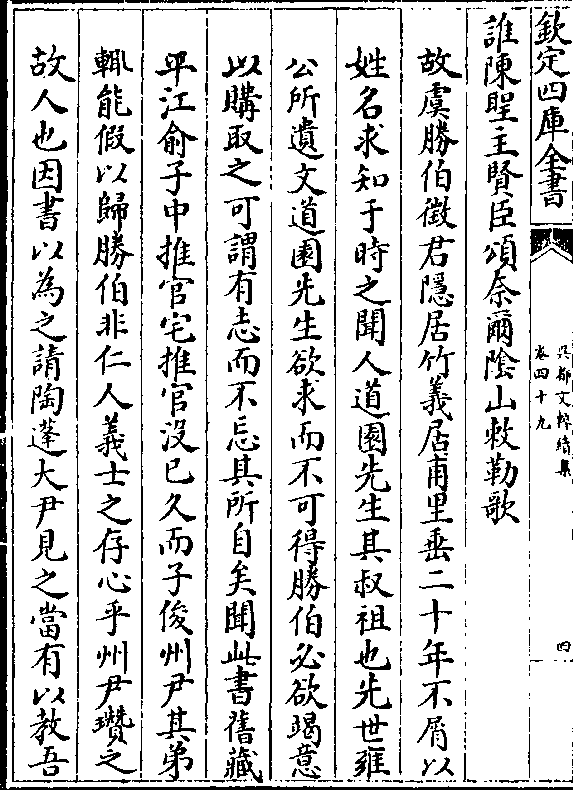 欽定四庫全書
吳都文粹續集
卷四十九
四
誰陳聖主賢臣頌奈爾陰山敕勒歌
故虞勝伯徵君隱居竹義居甫里垂二十年不屑以
姓名求知于時之聞人道園先生其叔祖也先世雍
公所遺文道園先生欲求而不可得勝伯必欲竭意
以購取之可謂有志而不忘其所自矣聞此書舊藏
平江俞子中推官宅推官沒已久而子俊州尹其弟
輒能假以歸勝伯非仁人義士之存心乎州尹瓚之
故人也因書以為之請陶蓬大尹見之當有以教吾